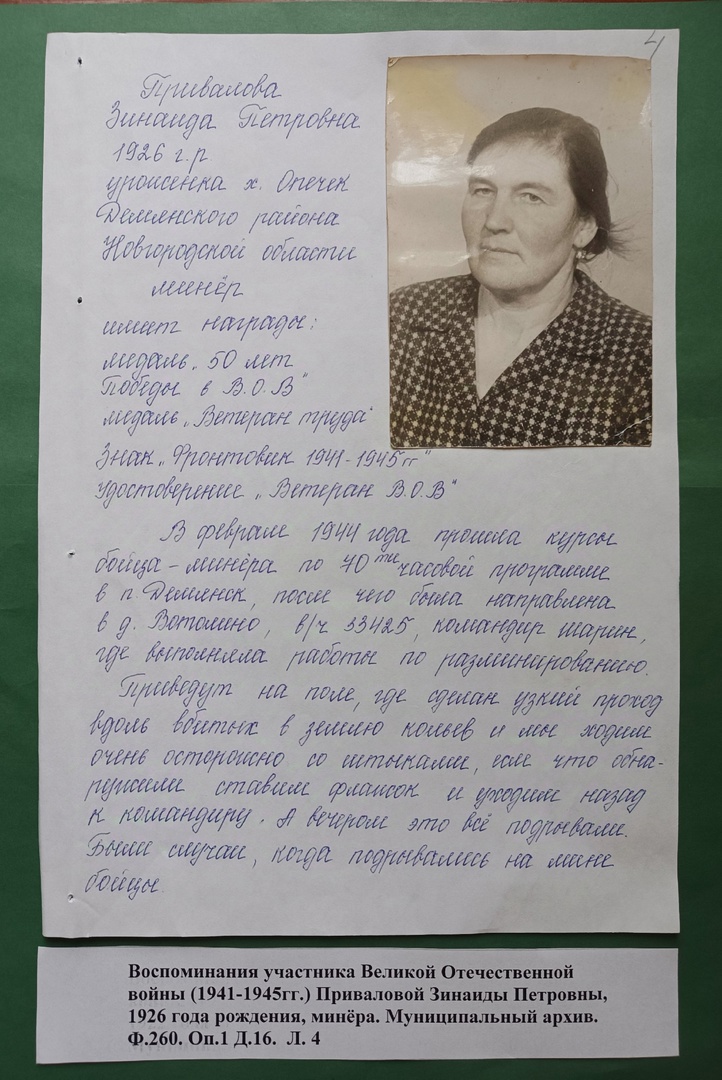 4
Привалова
Зинаида Петровна
1926 г.р
уроженка х. Опечек
Демянского района
Новгородской области
минёр
имеет награды:
медаль „50 лет
Победы в В.О.В"
медаль „Ветеран труда"
Знак „Фронтовик 1941-1945гг"
Удостоверение „Ветеран В.О.В"
В феврале 1944 года прошла курсы
бойца-минёра по 70ти часовой программе
в п. Демянск, после чего была направлена
в д. Вотолино, в/ч 33425, командир Шарин,
где выполняла работы по разминированию.
Приведут на поле, где сделан узкий проход
вдоль вбитых в землю кольев и мы ходим
очень осторожно со штыками, если что обна-
ружили ставим флажок и уходим назад
к командиру. А вечером это всё подрывали.
Были случаи, когда подрывались на мине
бойцы.
Воспоминания участника Великой Отечественной
войны (1941-1945гг.) Приваловой Зинаиды Петровны,
1926 года рождения, минёра. Муниципальный архив.
Ф.260. Оп.1 Д.16. Л. 4